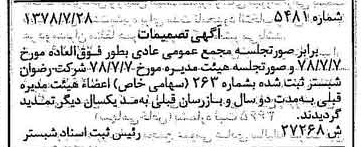 شماره ۵۴۸۱ ۱۳۷۸/۷/۲۸
آگهی تصمیمات
برابر صورتجلسه مجمع عمومی عادی بطور فوق‌العاده مورخ
۷۸/۷/۷ و صورتجلسه هیئت مدیره مورخ ۷۸/۷/۷ شرکت رضوان
شبستر ثبت شده بشماره ۲۶۳ (سهامی خاص) اعضاء هیئت مدیره
قبلی به‌مدت دو سال و بازرسان قبلی به‌مد یکسال دیگر تمدید
گردیدند.
ش ۲۷۲۶۸ رئیس ثبت اسناد شبستر